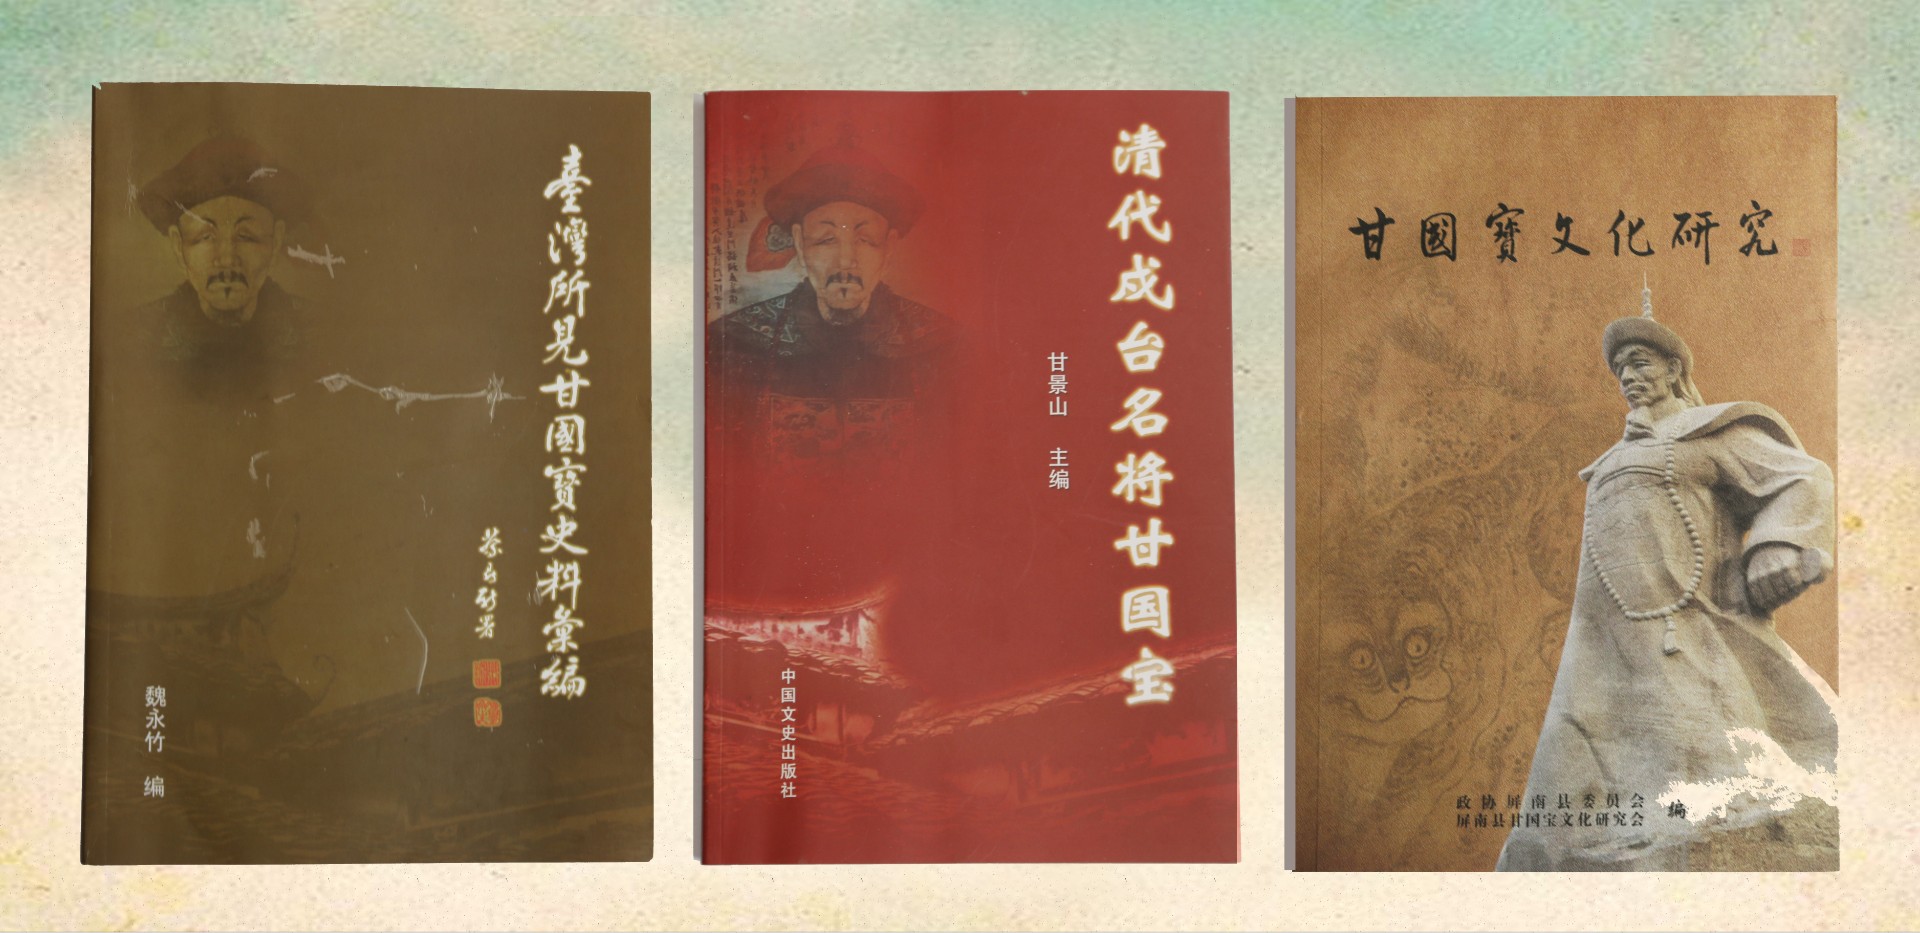 臺灣所見甘國寶史料彙編
魏永竹 编
清代戍台名将甘国宝
甘景山 主编
中国文史出版社
甘國寶文化研究
政协屏南县委员会
屏南县甘国宝文化研究会
编